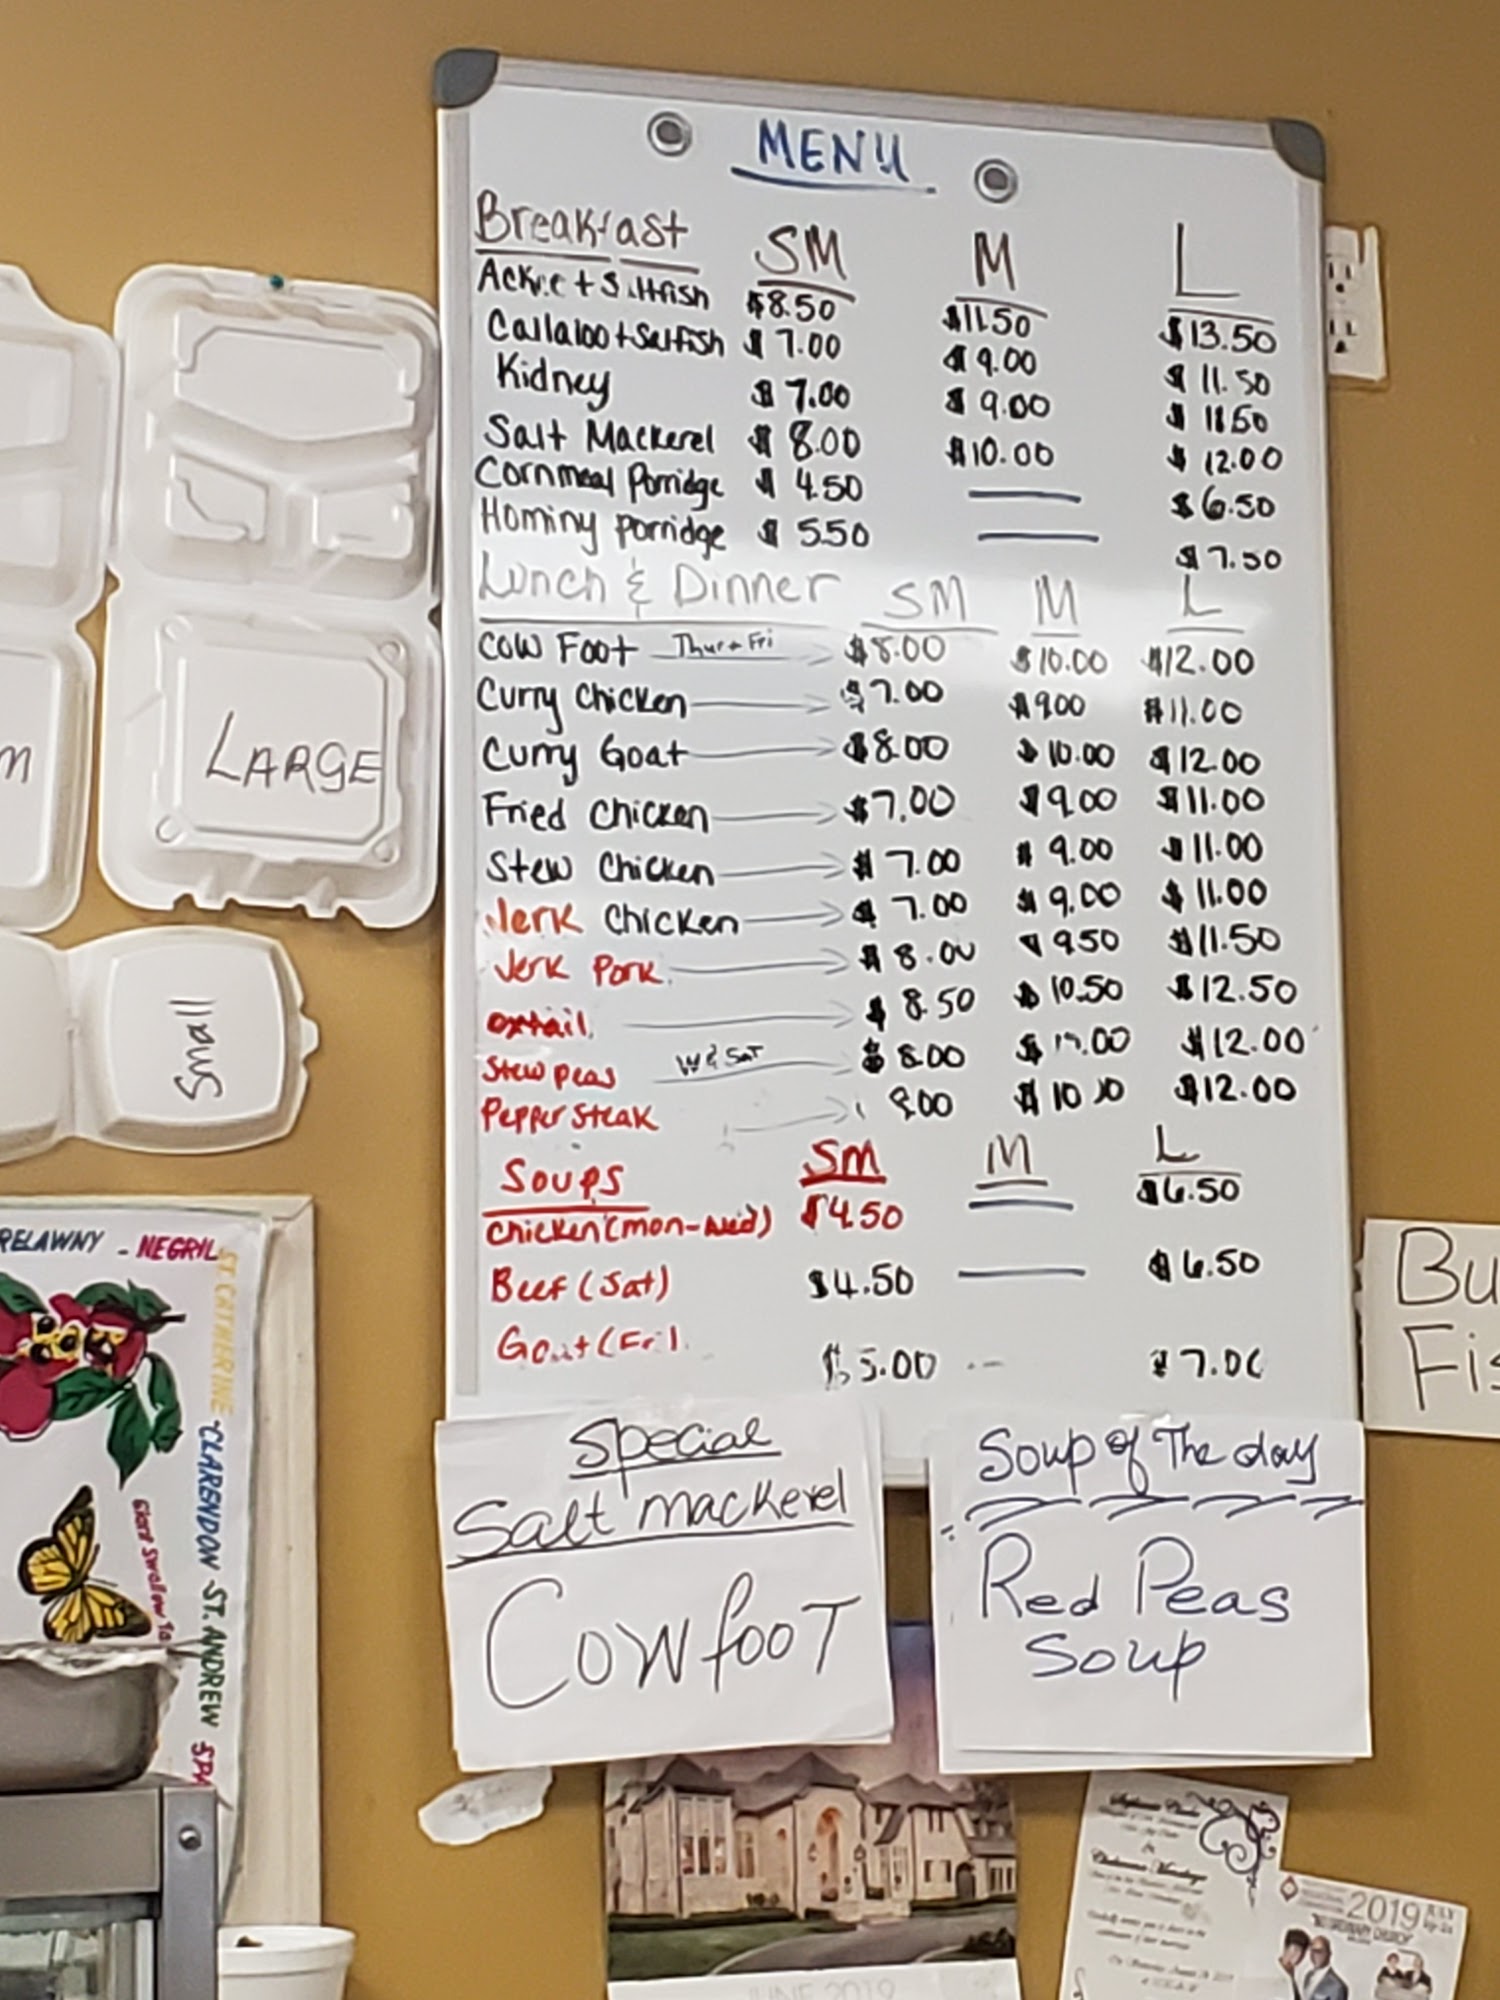 MENU
Breakfast SM M L
Ackee + Saltfish $8.50 $11.50 $13.50
Callaloo + Saltfish $7.00 $9.00 $11.50
Kidney $7.00 $9.00 $11.50
Salt Mackerel $8.00 $10.00 $12.00
Cornmeal Porridge $4.50 $6.50
Hominy porridge $5.50 $7.50
Lunch & Dinner SM M L
Cow Foot Thur + Fri $8.00 $10.00 $12.00
Curry Chicken $7.00 $9.00 $11.00
Curry Goat $8.00 $10.00 $12.00
Fried Chicken $7.00 $9.00 $11.00
Stew Chicken $7.00 $9.00 $11.00
Jerk Chicken $7.00 $9.00 $11.00
Jerk Pork $8.00 $9.50 $11.50
oxtail $8.50 $10.50 $12.50
Stew peas W & Sat $8.00 $10.00 $12.00
Pepper Steak 8.00 $10.00 $12.00
Soups SM M L
Chicken (mon-wed) $4.50 $6.50
Beef (Sat) $4.50 $6.50
Goat (Fri) $5.00 $7.00
Special
Salt mackerel
Cowfoot
Soup of The day
Red Peas
Soup
LARGE
Small
M
RELAWNY - NEGRIL
ST. CATHERINE
CLARENDON ST. ANDREW
Bu
Fis
JUNE 2019
2019 JULY